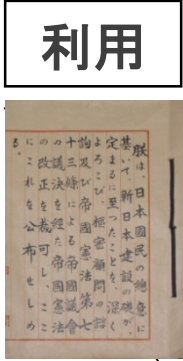 利用
朕は、日本國民の總意に
基いて、新日本建設の礎が、
定まるに至つたことを、深く
よろこび、樞密顧問の諮
詢及び帝國憲法第七
十三條による帝國議會
の議決を經た帝國憲法
の改正を裁可し、ここ
にこれを公布せしめ
る。